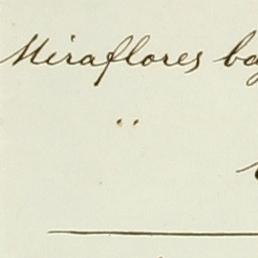 Miraflores
"